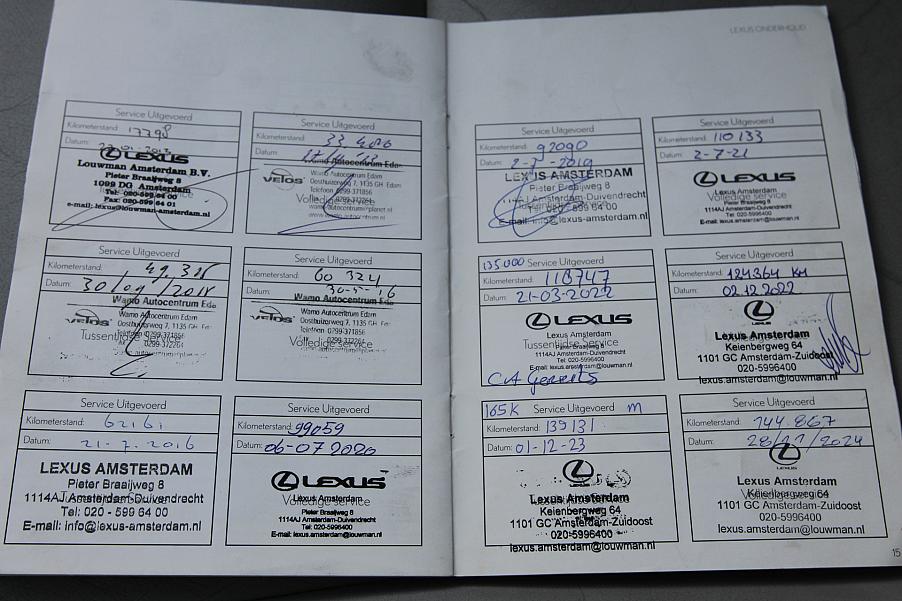 LEXUS ONDERHOUD
Service Uitgevoerd
Kilometerstand: 17798
Datum:
LEXUS
Louwman Amsterdam B.V.
Pieter Braaijweg 8
1099 DG Amsterdam
Tel: 020-599 64 00
Fax: 020-599 64 01
e-mail: lexus@louwman-amsterdam.nl
Service Uitgevoerd
Kilometerstand:
Datum:
Wamo Autocentrum Edam
VEIOS
Wamo Autocentrum Edam
Oosthuizerweg 7, 1135 GH Edam
Telefoon 0299-371856
Volledige service
Service Uitgevoerd
Kilometerstand:
Datum: 30/09/2014
Wamo Autocentrum Eda
VEIOS
Wamo Autocentrum Edam
Oosthuizerweg 7, 1135 GH
Telefoon 0299-371856
Tussentijdse Service
Service Uitgevoerd
Kilometerstand: 60 324
Datum:
Wamo Autocentrum Eda
VEIOS
Wamo Autocentrum Edam
Oosthuizerweg 7, 1135 GH
Telefoon 0299-371856
Volledige service
Service Uitgevoerd
Kilometerstand:
Datum: 21-7-2016
LEXUS AMSTERDAM
Pieter Braaijweg 8
1114AJ Amsterdam-Duivendrecht
Tel: 020 - 599 64 00
E-mail: info@lexus-amsterdam.nl
Service Uitgevoerd
Kilometerstand: 99059
Datum: 06-07 2020
LEXUS
Lexus Amsterdam
Volledige service
Pieter Braaijweg 8
1114AJ Amsterdam-Duivendrecht
Tel: 020-5996400
E-mail: lexus.amsterdam@louwman.nl
Service Uitgevoerd
Kilometerstand: 92090
Datum: 2-7-2019
LEXUS AMSTERDAM
Pieter Braaijweg 8
1114AJ Amsterdam-Duivendrecht
E-mail: info@lexus-amsterdam.nl
Service Uitgevoerd
Kilometerstand: 110133
Datum: 2-7-21
LEXUS
Lexus Amsterdam
Volledige service
Pieter Braaijweg 8
1114AJ Amsterdam-Duivendrecht
Tel: 020-5996400
E-mail: lexus.amsterdam@louwman.nl
135000 Service Uitgevoerd
Kilometerstand: 118747
Datum: 21-03-2022
LEXUS
Lexus Amsterdam
Tussentijdse Service
Pieter Braaijweg 8
1114AJ Amsterdam-Duivendrecht
Tel: 020-5996400
E-mail: lexus.amsterdam@louwman.nl
Service Uitgevoerd
Kilometerstand: 124364 KM
Datum: 02.12.2022
LEXUS
Lexus Amsterdam
Volledige service
Keienbergweg 64
1101 GC Amsterdam-Zuidoost
020-5996400
lexus.amsterdam@louwman.nl
165K Service Uitgevoerd m
Kilometerstand: 139131
Datum: 01-12-23
LEXUS
Lexus Amsterdam
Keienbergweg 64
1101 GC Amsterdam-Zuidoost
020-5996400
lexus.amsterdam@louwman.nl
Service Uitgevoerd
Kilometerstand: 144.867
Datum: 28/11/2024
LEXUS
Lexus Amsterdam
Volledige service
Keienbergweg 64
1101 GC Amsterdam-Zuidoost
020-5996400
lexus.amsterdam@louwman.nl
15